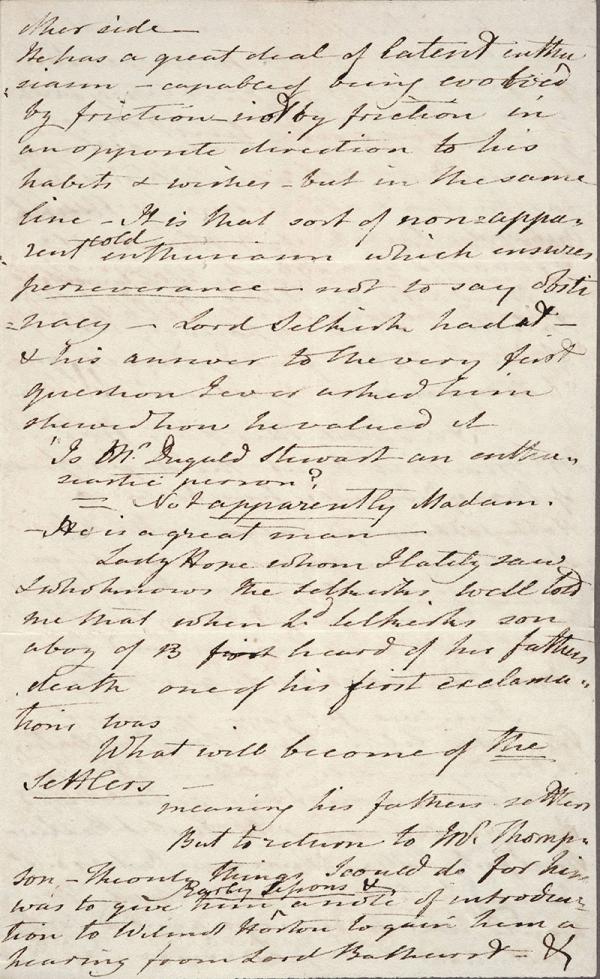 other side —
He has a great deal of latent enthu
siasm – capable of being evolved
by friction – not by friction in
an opposite direction to his
habits & wishes – but in the same
line – It is that sort of non=appa=
rent cold enthusiasm which ensures
perseverance – not to say obsti
=nacy – Lord Selkirk had it –
& his answer to the very first
question I ever asked him
shewed how he valued it
"Is Mr. Dugald Stewart an enthu=
siastic person?
= Not apparently Madam.
– He is a great man
Lady Hope whom I lately saw
& who knows the Selkirks well told
me that when Ld Selkirks son
a boy of 13 first heard of his fathers
death one of his first exclama=
tions was
What will become of the
Settlers –
meaning his fathers settlers
But to return to Mr. Thomp=
son – The only things I could do for him
was to give him Early Lessons & a note of introduc=
tion to Wilmot Horton to gain him a
hearing from Lord Bathurst – &